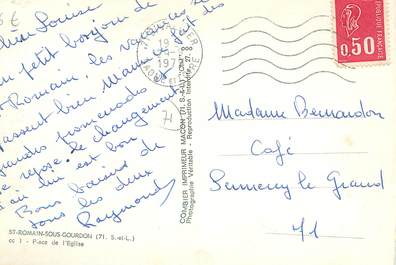 Chère Louise
un petit bonjour de
St Romain. les vacances se
passent bien Mamie fait des
grandes promenades
se repose. le changement
d'air lui est bon
Bons baisers de
tous les deux
Raymonde
ST-ROMAIN-SOUS-GOURDON (71. S.-et-L.)
cc 1 - Place de l'Eglise
COMBIER IMPRIMEUR MACON (71. S.-&-L.) "CIM"
Photographie Véritable - Reproduction Interdite
71
0,50
Madame Bernardon
Café
Sennecey le Grand
71